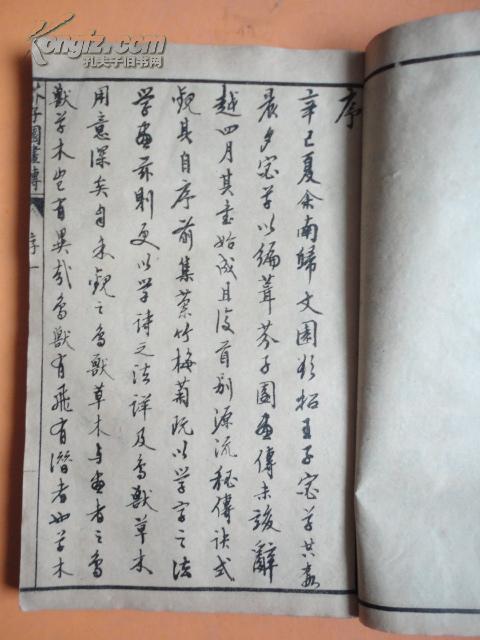 序
辛巳夏余南歸文園猶招王子宓草其
晨夕宓草以編葺芥子園畫傳未竣辭
越四月其書始成且復首別源流秘傳訣式
觀其自序前集蘭竹梅菊既以學字之法
學畫茲則更以學詩之法詳及鳥獸草木
用意深矣自來觀之鳥獸草木與畫者之鳥
獸草木豈有異哉鳥獸有飛有潛者如草木
芥子園畫傳
序
一
Kongfz.com
孔夫子旧书网